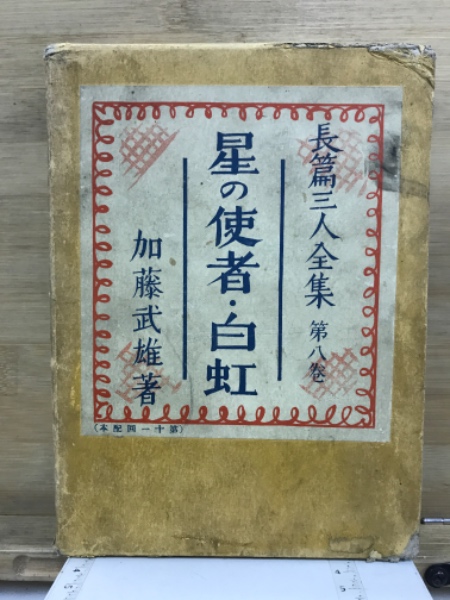 長篇三人全集 第八卷
星の使者・白虹
加藤武雄著
(第十一回配本)